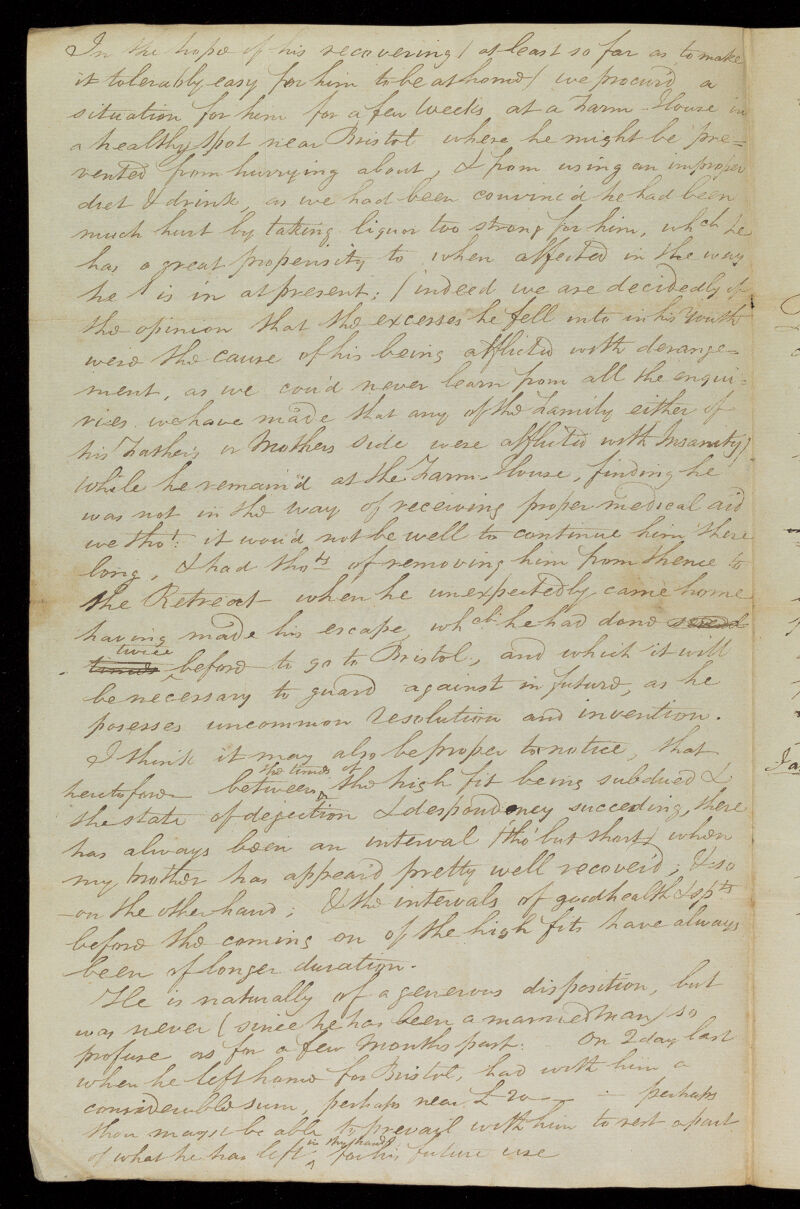 In the hope of his recovering (at least so far as to make
it tolerably easy for him to be at home) we procur'd a
situation for him for a few Weeks at a Farm-House in
a healthy spot near Bristol where he might be pre=
vented from hurrying about, & from using an improper
diet & drink, as we had been convinc'd he had been
much hurt by taking liquor too strong for him, which he
has a great propensity to when affected in the way
he is in at present; (indeed we are decidedly of
the opinion that the excesses he fell into in his Youth
were the cause of his being afflicted with derange=
ment, as we cou'd never learn from all the enqui=
ries we have made that any of the Family either of
his Fathers or Mothers side were afflicted with Insanity)
While he remain'd at the Farm-House, finding he
was not in the way of receiving proper medical aid
we thot. it wou'd not be well to continue him there
long, & had thots of removing him from thence to
the Retreat when he unexpectedly came home
having made his escape, which he had done several
times twice before to go to Bristol, and which it will
be necessary to guard against in future, as he
posesses uncommon resolution and invention.
I think it may also be proper to notice, that
heretofore between the times of the high fit being subdued &
the state of dejection & despondency succeeding, there
has always been an interval (tho' but short) when
my Brother has appear'd pretty well recover'd; & so
on the other hand; & the intervals of good health & spts
before the coming on of the high fits have always
been of longer duration.
He is naturally of a generous disposition, but
was never (since he has been a married man) so
profuse as for a few Months past. On 2day last
when he left home for Bristol, had with him a
considerable sum, perhaps near £20 — perhaps
thou mayst be able to prevail with him to rest a part
of what he has left in thy hands for his future use